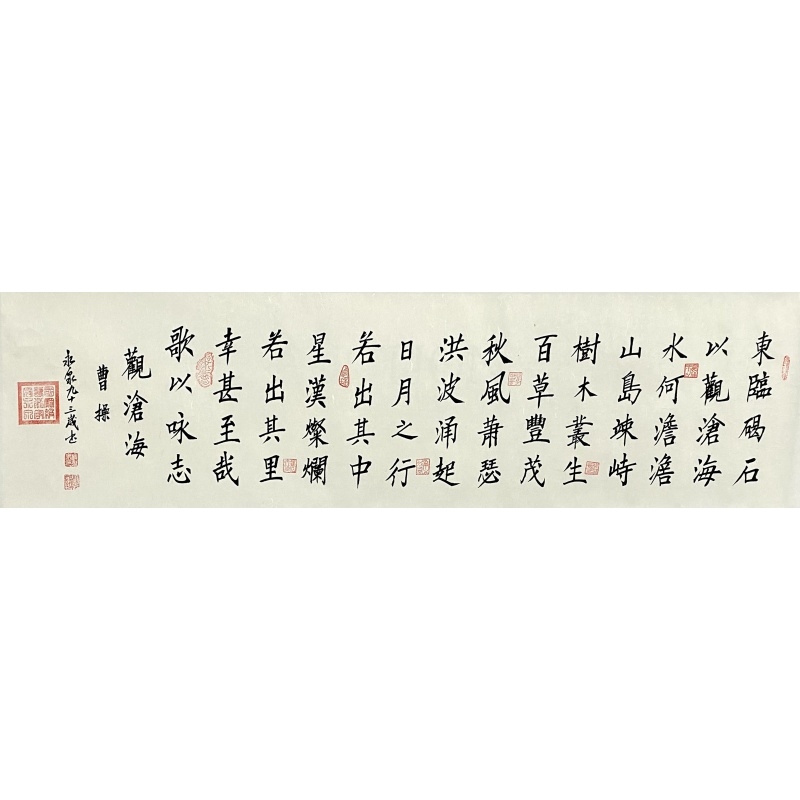 東臨碣石
以觀滄海
水何澹澹
山島竦峙
樹木叢生
百草豐茂
秋風蕭瑟
洪波涌起
日月之行
若出其中
星漢燦爛
若出其里
幸甚至哉
歌以咏志
觀滄海
曹操
永泉九十三歲書